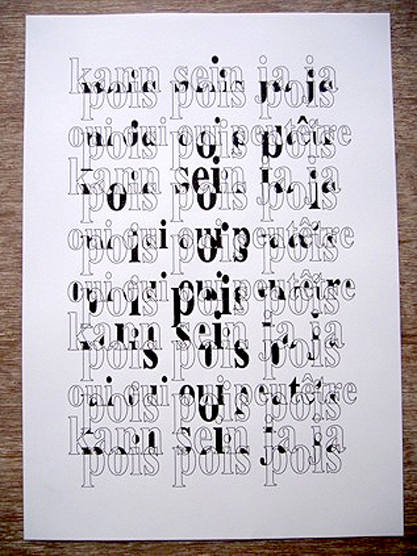 kann sein ja ja
pois pois pois
oui oui oui peutêtre
pois pois pois
kann sein ja ja
pois pois pois
oui oui oui peutêtre
pois pois pois
oui oui oui peutêtre
pois pois pois
kann sein ja ja
pois pois pois
oui oui oui peutêtre
pois pois pois
kann sein ja ja
pois pois pois